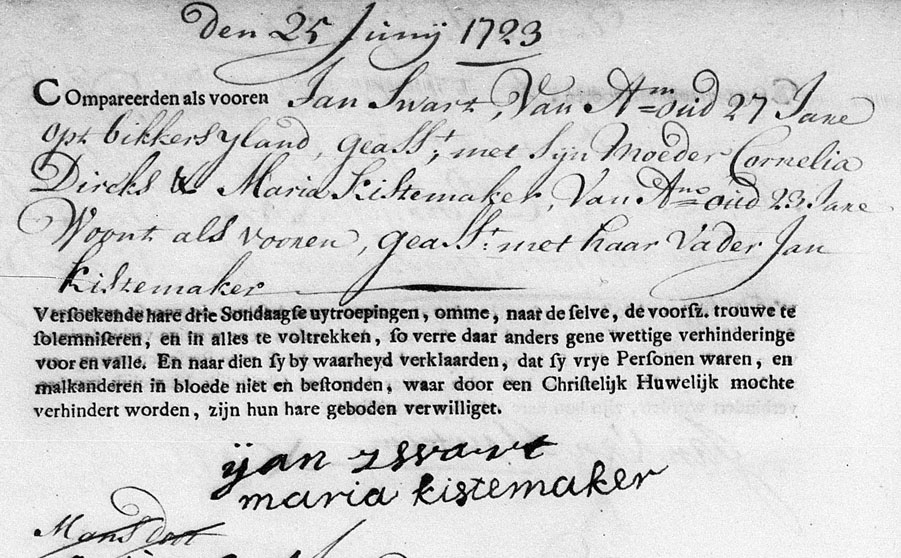 den 25 Junij 1723
COmpareerden als vooren Jan Swart, Van Am= oud 27 Jare
opt bikkers yland, geasst, met syn Moeder Cornelia
Dircks & Maria Kistemaker, Van Am= oud 23 Jare
Woont als vooren, geasst. met haar Vader Jan
Kistemaker
Versoekende hare drie Sondaagse uytroepingen, omme, naar de selve, de voorsz. trouwe te
solemniseren, en in alles te voltrekken, so verre daar anders gene wettige verhinderinge
voor en valle. En naar dien sy by waarheyd verklaarden, dat sy vrye Personen waren, en
malkanderen in bloede niet en bestonden, waar door een Christelijk Huwelijk mochte
verhindert worden, zijn hun hare geboden verwilliget.
ijan zwart
maria kistemaker
Mans